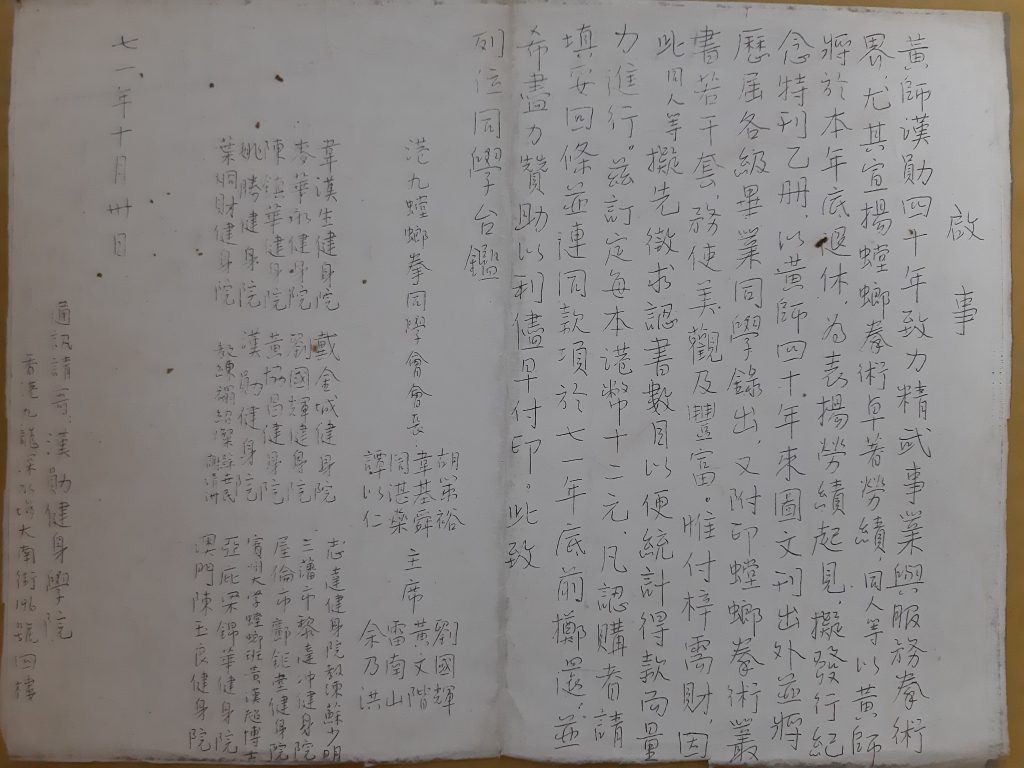 啟事
黃師漢勛四十年致力精武事業與服務拳術
界，尤其宣揚螳螂拳術卓著勞績，同人等以黃師
將於本年底退休，為表揚勞績起見，擬發行紀
念特刊乙册，以黃師四十年來圖文刊出外並將
歷屆各級畢業同學錄出，又附印螳螂拳術叢
書若干套，務使美觀及豐富。惟付梓需財，因
此同人等擬先徵求認書數目以便統計得款而量
力進行。茲訂定每本港幣十二元，凡認購者請
填妥回條並連同款項於七一年底前擲還，並
希盡力贊助以利儘早付印。此致
列位同學台鑑
港九螳螂拳同學會會長
胡榮裕
韋基舜
周湛燊
譚以仁
主席
劉國輝
黃文階
雷南山
余乃洪
韋漢生健身院 戴金城健身院 志達健身院教練蘇少明
麥華永健身院 劉國輝健身院 三藩市黎達冲健身院
陳鎮華健身院 黃楊昌健身院 屋倫市鄺鉅堃健身院
姚勝健身院 漢勛健身院 賓州大學螳螂班黃漢超博士
葉炯財健身院 教練 亞庇梁錦華健身院
澳門陳玉良健身院
七一年十月卅日
通訊請寄：漢勛健身學院
香港九龍深水埗大南街196號四樓